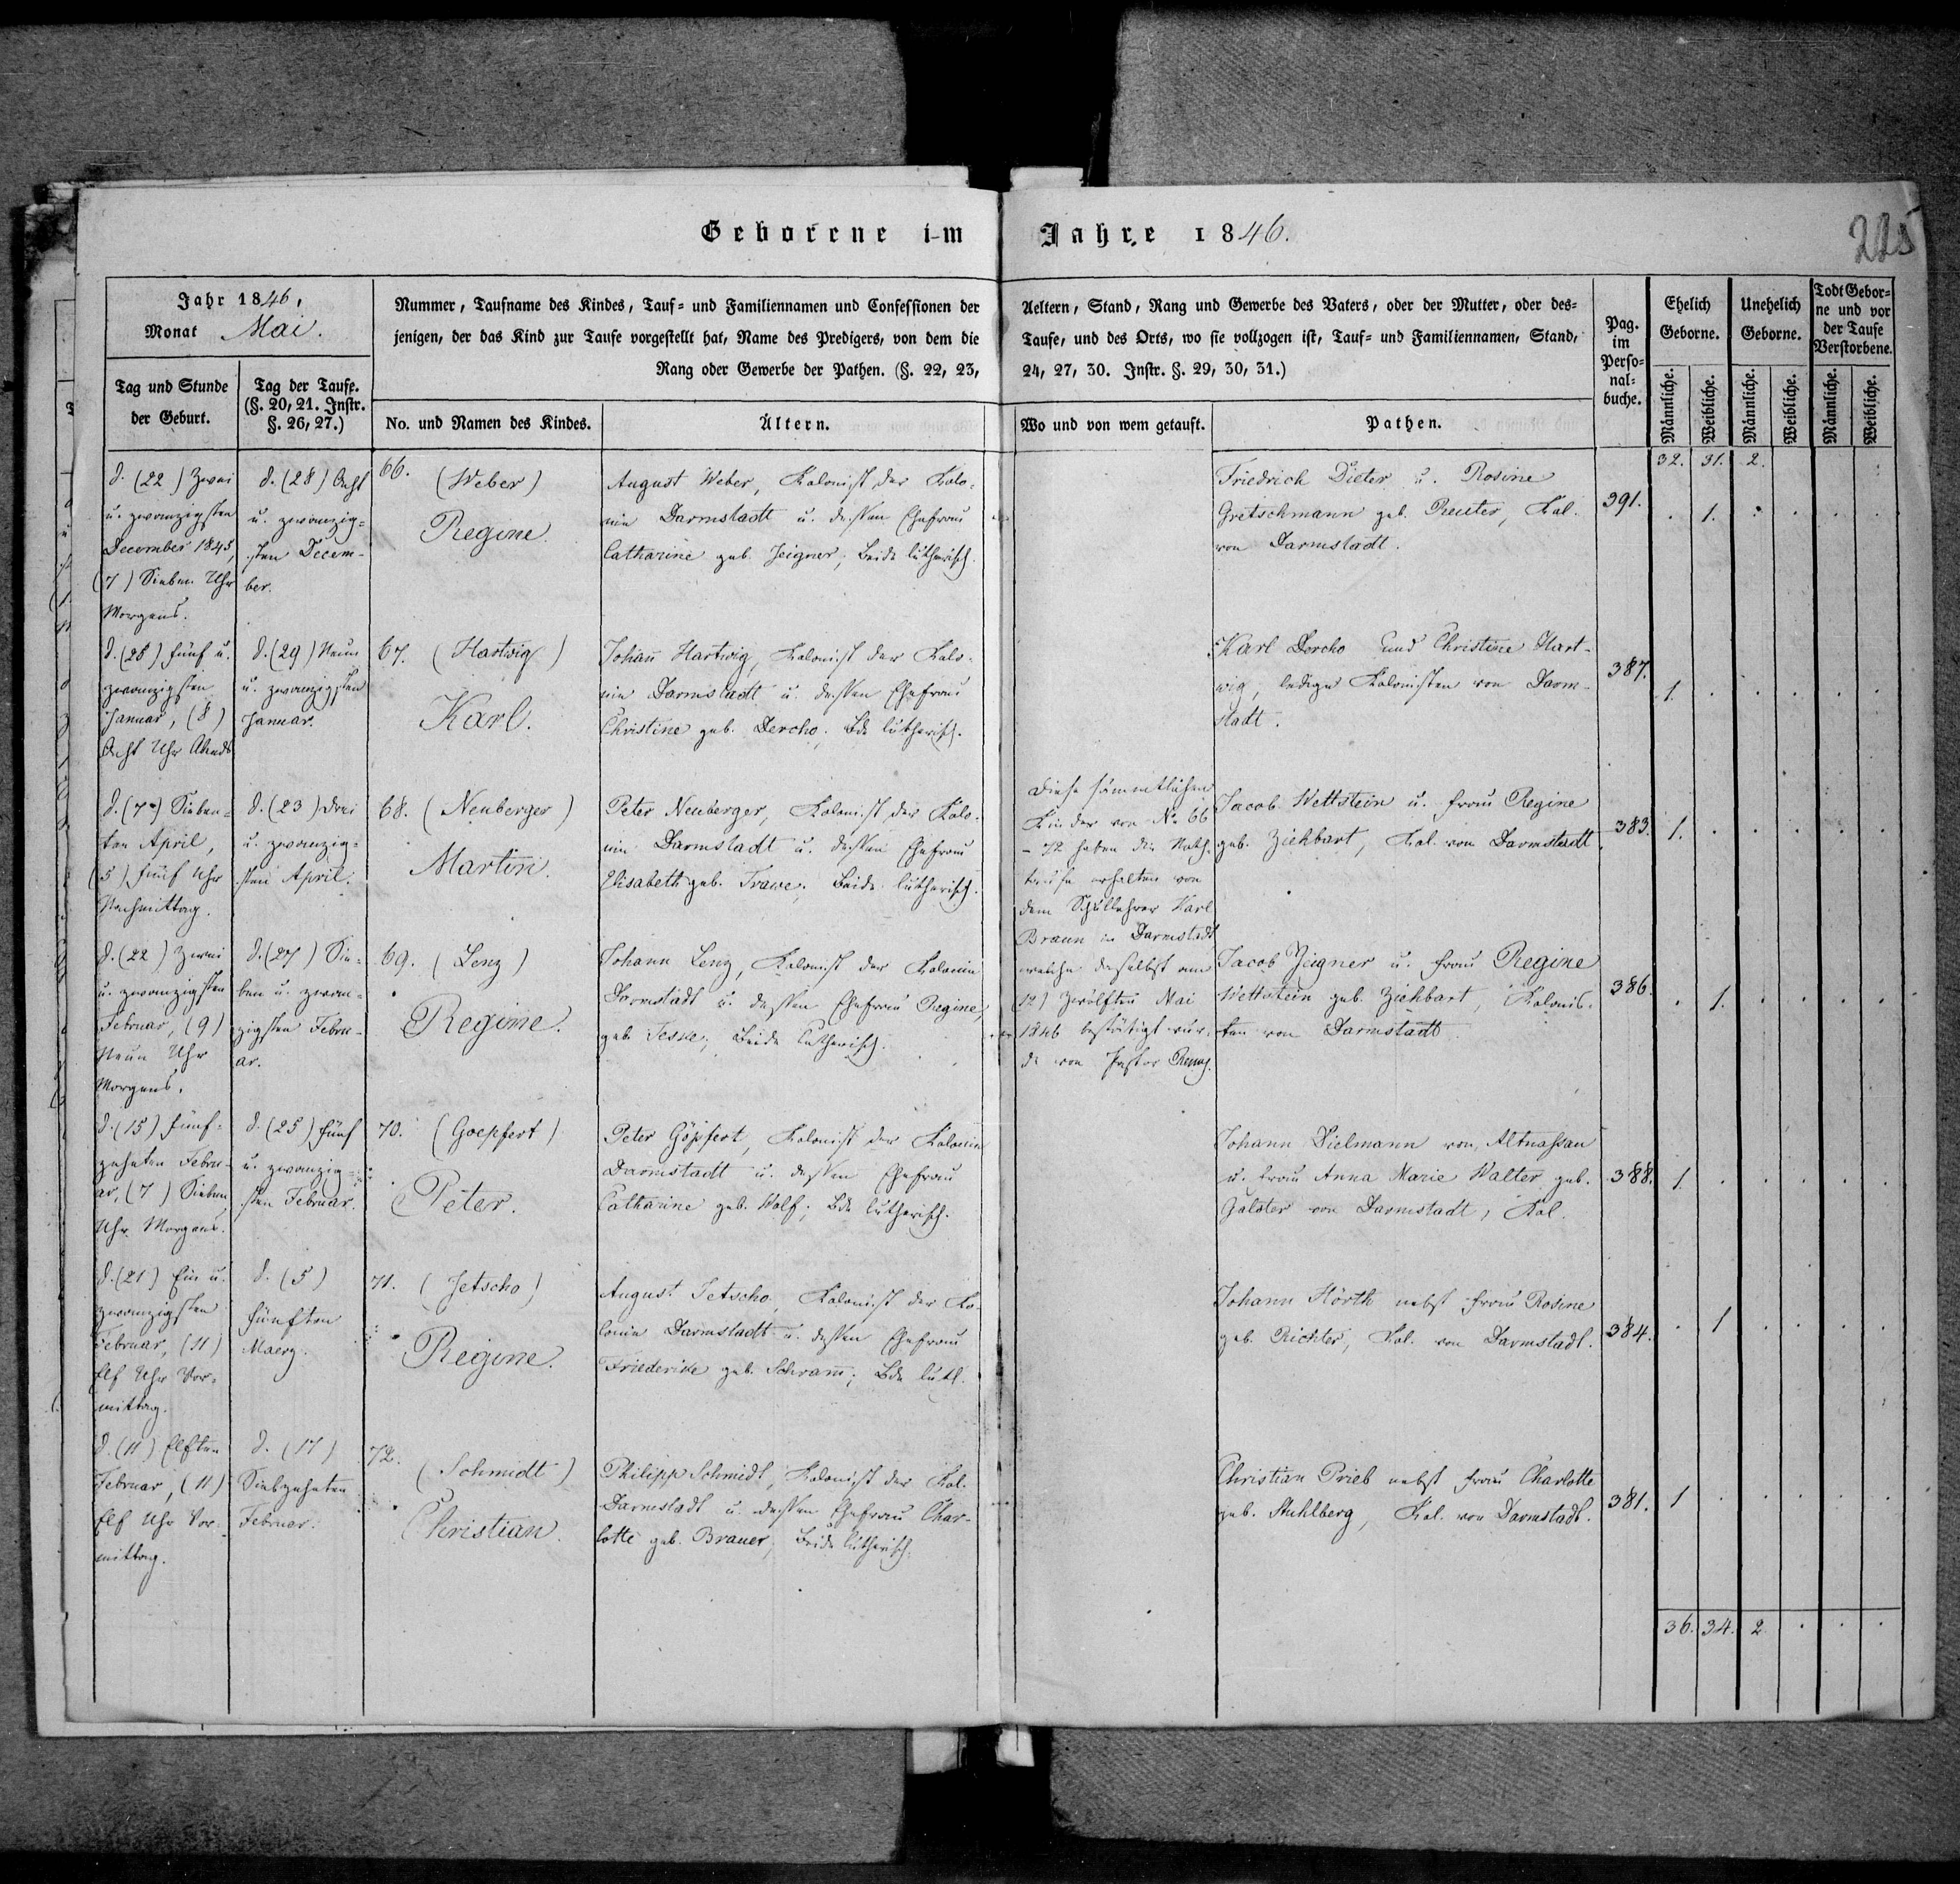 Geborene im Jahre 1846.
225
Jahr 1846,
Monat Mai.
Tag und Stunde
der Geburt.
Tag der Taufe.
(§. 20, 21. Instr.
§. 26, 27.)
Nummer, Taufname des Kindes, Tauf- und Familiennamen und Confessionen der Aeltern, Stand, Rang und Gewerbe des Vaters, oder der Mutter, oder des-
jenigen, der das Kind zur Taufe vorgestellt hat, Name des Predigers, von dem die Taufe, und des Orts, wo sie vollzogen ist, Tauf- und Familiennamen, Stand,
Rang oder Gewerbe der Pathen. (§. 22, 23, 24, 27, 30. Instr. §. 29, 30, 31.)
No. und Namen des Kindes.
Ältern.
Wo und von wem getauft.
Pathen.
Pag.
im
Perso-
nal-
buche.
Ehelich
Geborne.
Unehelich
Geborne.
Todt Gebor-
ne und vor
der Taufe
Verstorbene.
Männliche.
Weibliche.
Männliche.
Weibliche.
Männliche.
Weibliche.
32. 31. 2.
d. (22) Zwei
u. zwanzigsten
December 1845,
(7) Sieben Uhr
Morgens.
d. (28) Acht
u. zwanzig-
sten Decem-
ber.
66. (Weber)
Regine.
August Weber, Kolonist der Kolo-
nie Darmstadt u. dessen Ehefrau
Catharine geb. Zeigner, Beide lutherisch.
Friedrich Dieter u. Rosine
Gretschmann geb. Reuter, Kol.
von Darmstadt.
391.
. 1. . . . .
d. (25) fünf u.
zwanzigsten
Januar, (8)
Acht Uhr Abends
d. (29) Neun
u. zwanzigsten
Januar.
67. (Hartwig)
Karl.
Johan̄ Hartwig, Kolonist der Kolo-
nie Darmstadt u. dessen Ehefrau
Christine geb. Dercho. Bde lutherisch.
Karl Dercho und Christine Hart-
wig, ledige Kolonisten von Darm-
stadt.
387.
1. . . . . .
d. (7) Sieben-
ten April,
(5) fünf Uhr
Nachmittag.
d. (23) drei
u. zwanzig-
sten April.
68. (Neuberger)
Martin.
Peter Neuberger, Kolonist der Kolo-
nie Darmstadt u. dessen Ehefrau
Elisabeth geb. Trawe. Beide lutherisch.
Diese sämmtlichen
Kinder von No 66
- 72 haben die Noth-
taufe erhalten von
dem Schullehrer Karl
Braun in Darmstadt
welche daselbst am
(12) zwölften Mai
1846 bestätigt wur-
de von Pastor
Jacob Wettstein u. Frau Regine
geb. Ziehbart, Kol. von Darmstadt.
383.
1. . . . . .
d. (22) Zwei
u. zwanzigsten
Februar, (9)
Neun Uhr
Morgens.
d. (27) Sie-
ben u. zwan-
zigsten Febru-
ar.
69. (Lenz)
Regine.
Johann Lenz, Kolonist der Kolonie
Darmstadt u. dessen Ehefrau Regine,
geb. Teske; Beide lutherisch.
Jacob Zeigner u. Frau Regine
Wettstein geb. Ziehbart, Kolonis-
ten von Darmstadt
386.
. 1. . . . .
d. (15) fünf-
zehnten Febru-
ar, (7) Sieben
Uhr Morgens.
d. (25) fünf
u. zwanzig-
sten Februar.
70. (Goepfert)
Peter.
Peter Göpfert, Kolonist der Kolonie
Darmstadt u. dessen Ehefrau
Catharine geb. Wolf; Bde lutherisch.
Johann Dielmann von Altnassau
u. Frau Anna Marie Walter geb.
Galster von Darmstadt, Kol.
388.
1. . . . . .
d. (21) Ein u.
zwanzigsten
Februar, (11)
Elf Uhr Vor-
mittag.
d. (5)
fünften
Maerz.
71. (Jetscho)
Regine.
August Jetscho, Kolonist der Ko-
lonie Darmstadt u. dessen Ehefrau
Friederike geb. Schram̄; Bde luth.
Johann Hörth nebst Frau Rosine
geb. Richter, Kol. von Darmstadt.
384.
. 1 . . . .
d. (11) Elften
Februar, (11)
Elf Uhr Vor-
mittag.
d. (17)
Siebzehnten
Februar.
72. (Schmidt)
Christian.
Philipp Schmidt, Kolonist der Kol.
Darmstadt u. dessen Ehefrau Char-
lotte geb. Brauer, Beide lutherisch.
Christian Prieb nebst Frau Charlotte
geb. Stuhlberg, Kol. von Darmstadt.
381.
1 . . . . .
36. 34. 2. . . .